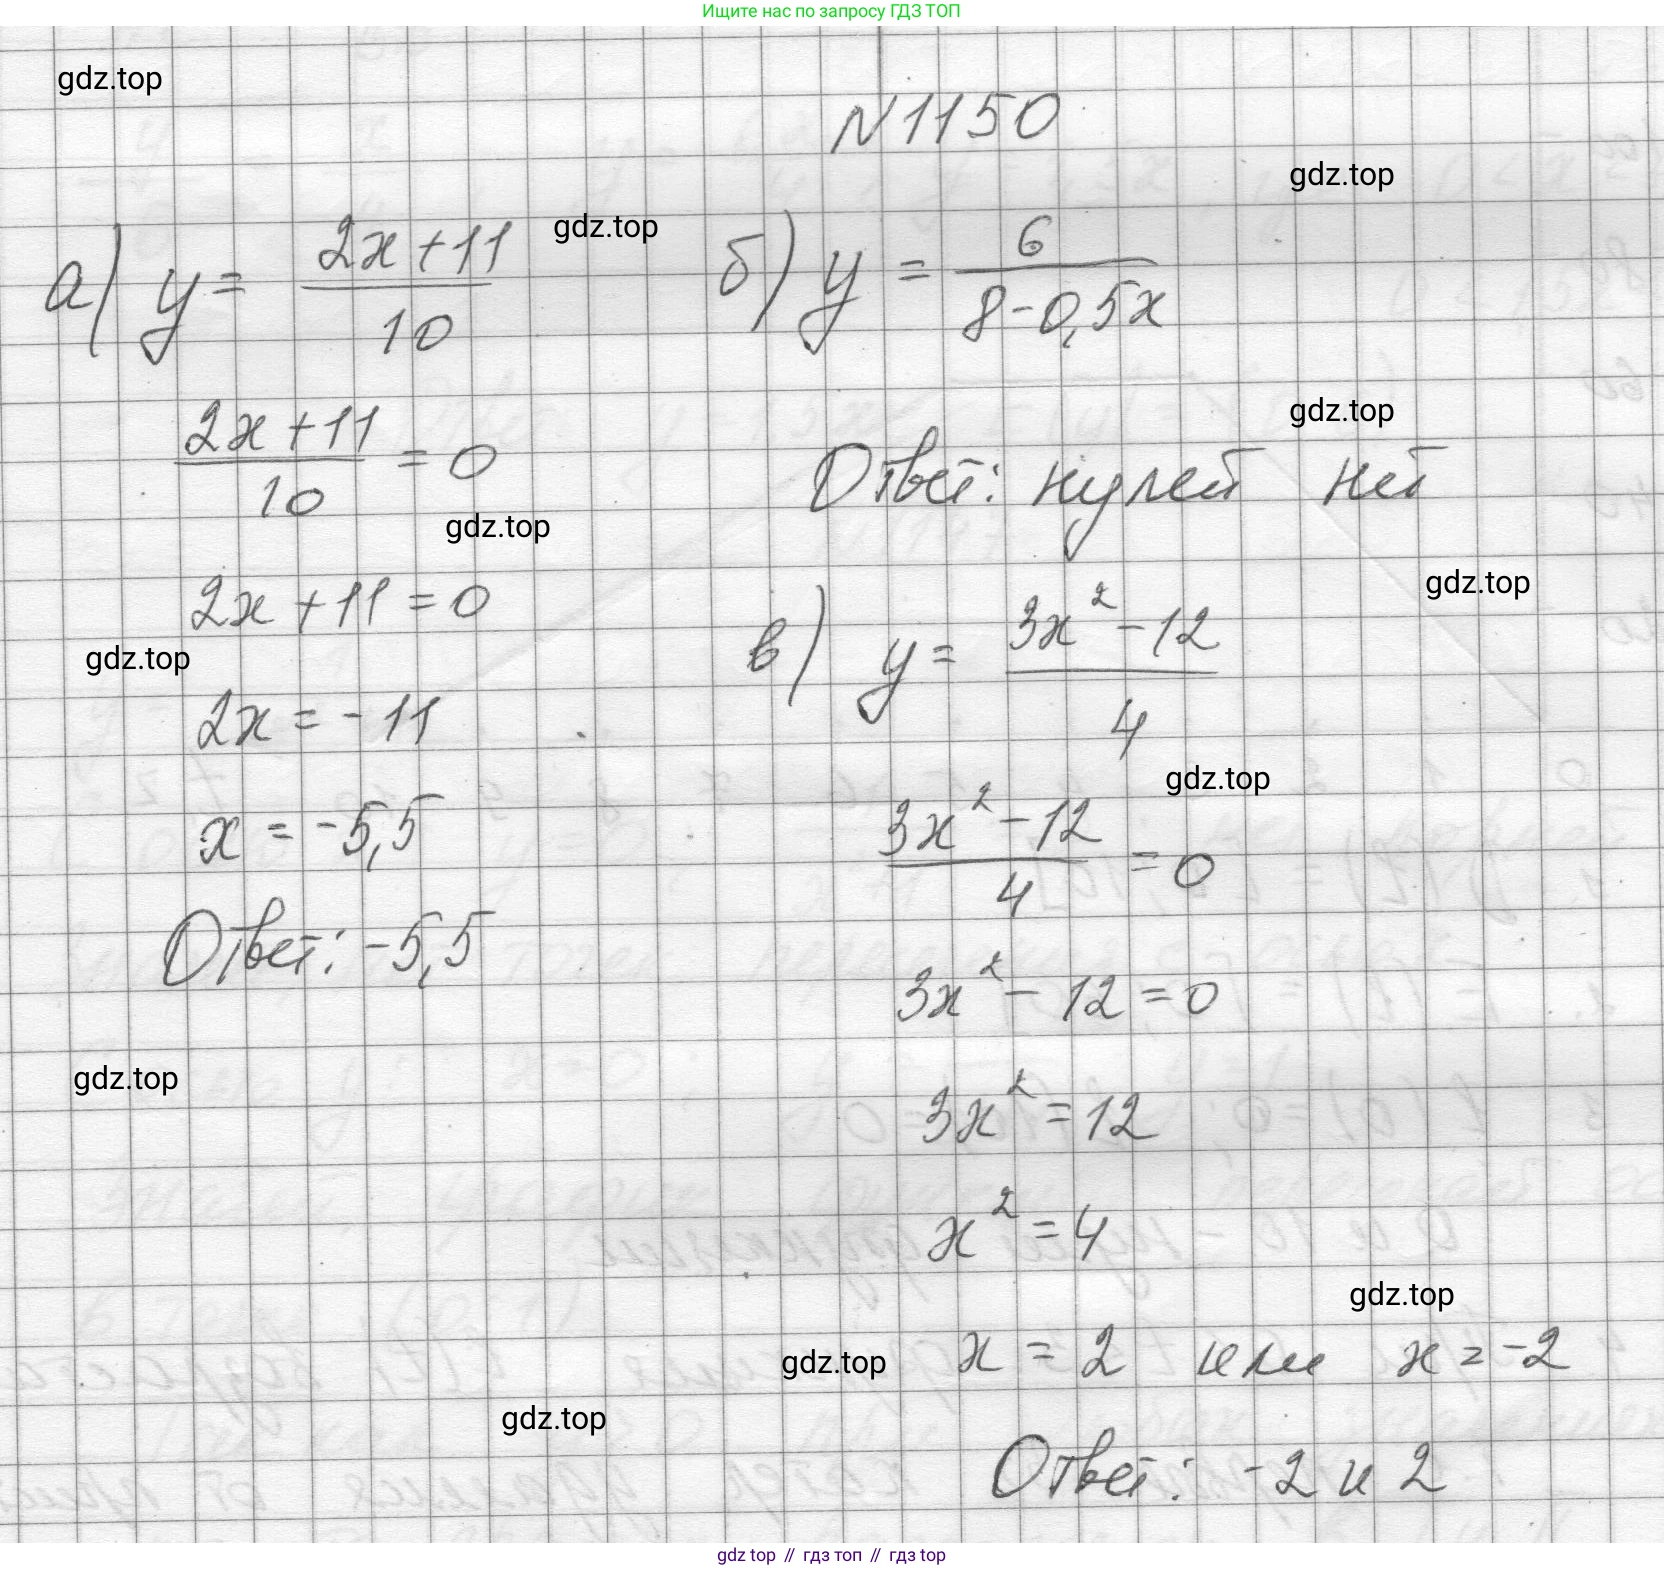 Ищите нас по запросу ГДЗ ТОП
gdz.top
N1150
gdz.top
а) y = (2x+11)/10
gdz.top
б) y = 6/(8-0,5x)
(2x+11)/10 = 0
gdz.top
Ответ: нулей нет
gdz.top
2x+11=0
gdz.top
в) y = (3x²-12)/4
gdz.top
2x=-11
gdz.top
(3x²-12)/4 = 0
x = -5,5
Ответ: -5,5
3x²-12=0
gdz.top
3x²=12
x²=4
gdz.top
gdz.top
x = 2 или x=-2
gdz.top
Ответ: -2 и 2
gdz top // гдз топ // gdz top